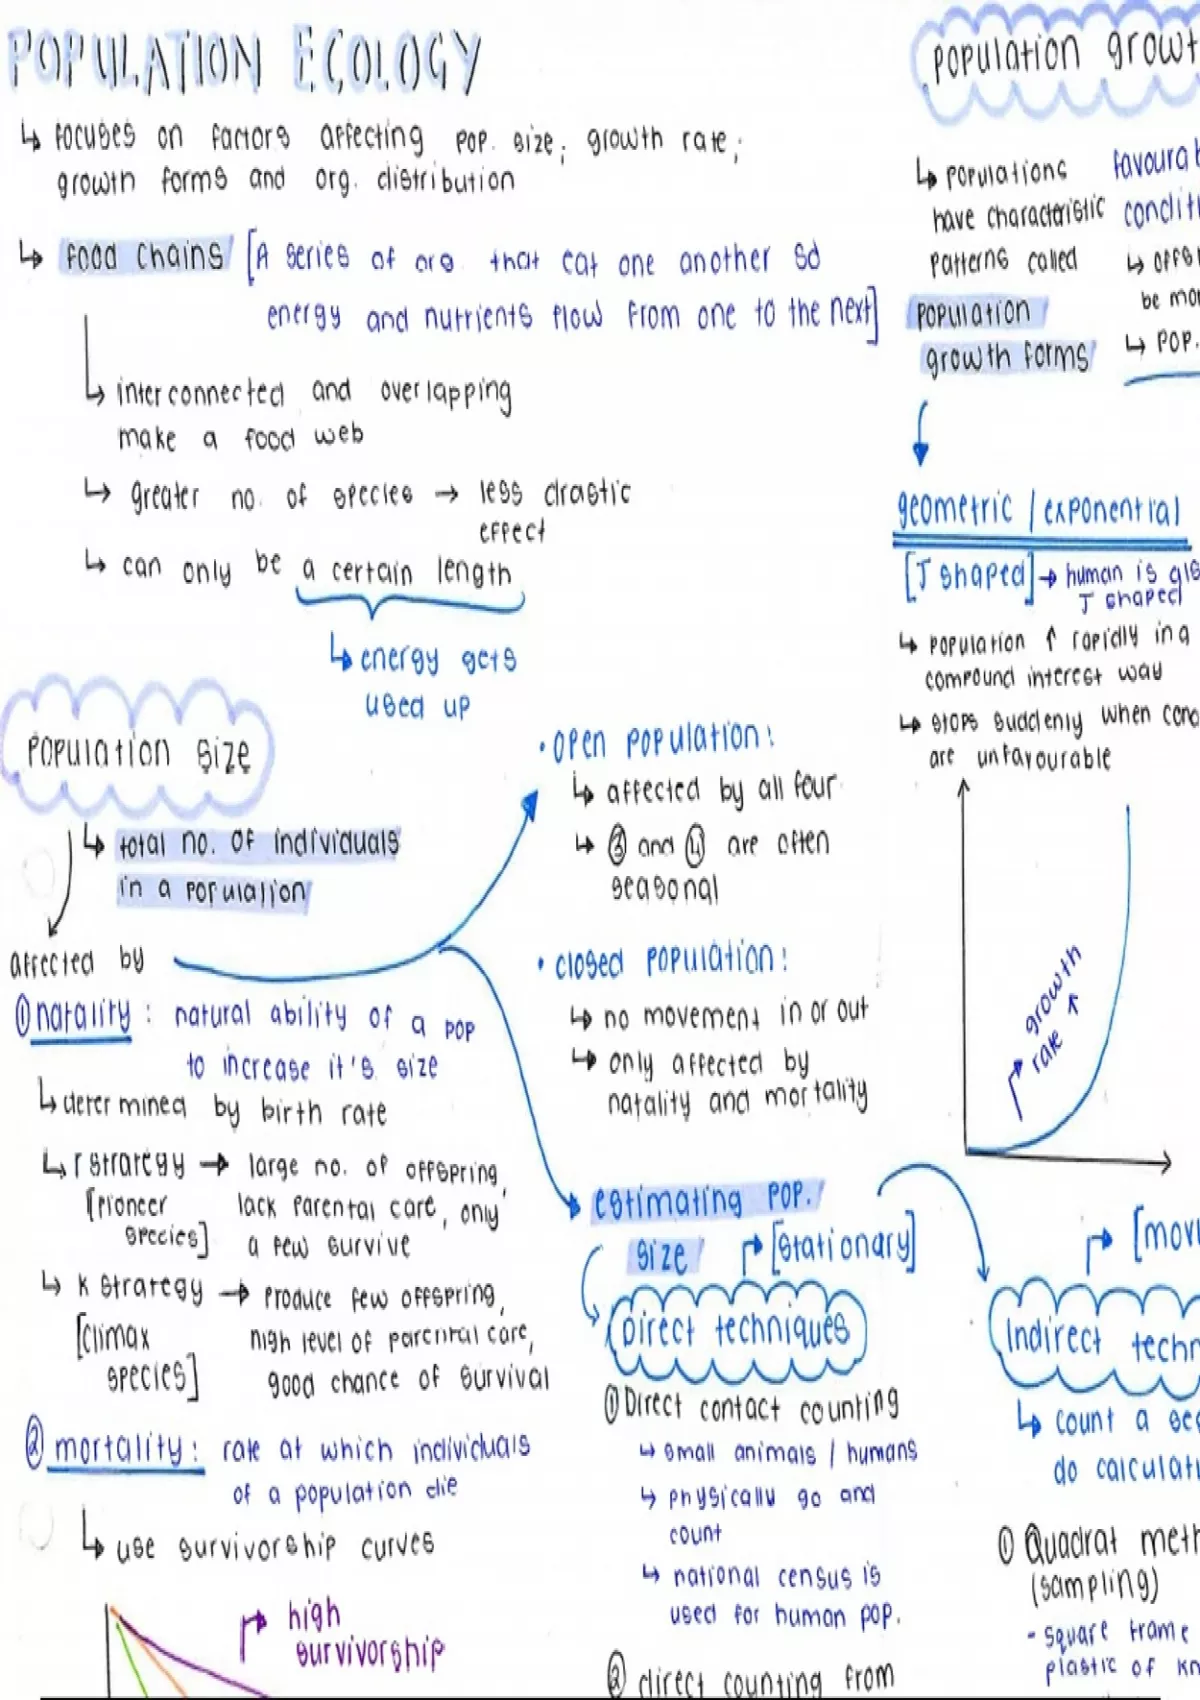 POPULATION ECOLOGY
↳ focuses on factors affecting pop. size, growth rate,
growth forms and org. distribution
↳ food chains [A series of org. that eat one another so
energy and nutrients flow from one to the next]
↳ interconnected and overlapping
make a food web
↳ greater no. of species → less drastic
effect
↳ can only be a certain length
↳ energy gets
used up
population size
↳ total no. of individuals
in a population
affected by
① natality: natural ability of a pop
to increase it's size
↳ determined by birth rate
↳ r strategy → large no. of offspring,
[pioneer lack parental care, only
species] a few survive
↳ K strategy → produce few offspring,
[climax high level of parental care,
species] good chance of survival
② mortality: rate at which individuals
of a population die
↳ use survivorship curves
high
survivorship
• open population:
↳ affected by all four
↳ ③ and ④ are often
seasonal
• closed population:
↳ no movement in or out
↳ only affected by
natality and mortality
estimating pop.
size
[stationary]
Direct techniques
① Direct contact counting
↳ small animals / humans
↳ physically go and
count
↳ national census is
used for human pop.
② direct counting from
population growt
↳ populations
have characteristic
patterns called
population
growth forms
favourab
condit
↳ offs
be mo
↳ pop.
geometric / exponential
[J shaped] → human is als
J shaped
↳ population ↑ rapidly in a
compound interest way
↳ stops suddenly when cond
are unfavourable
growth
rate ↑
[mov
Indirect techn
↳ count a sec
do calculati
① Quadrat meth
(sampling)
- square frame
plastic of kn